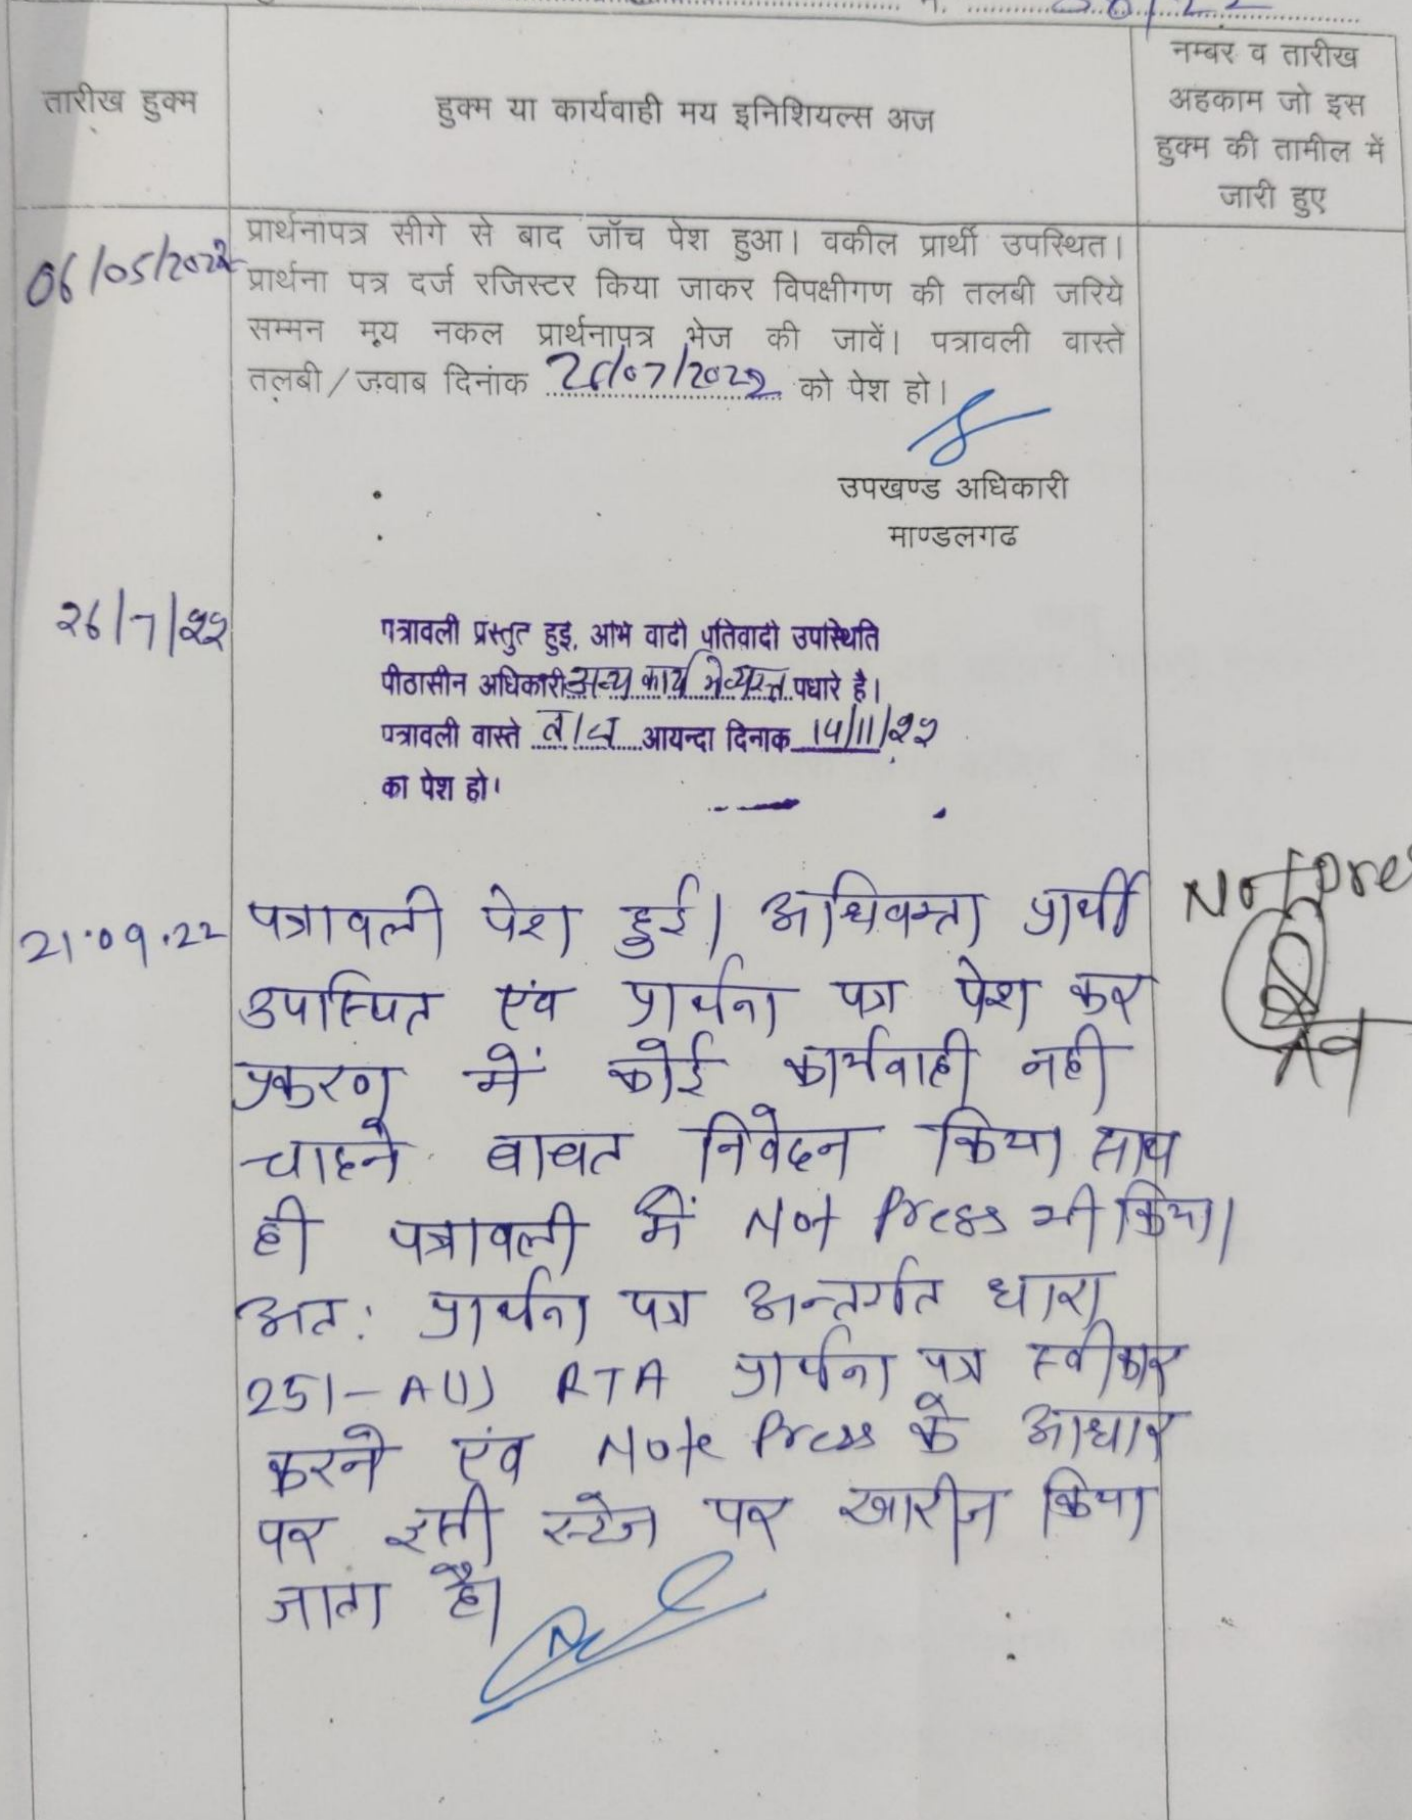 तारीख हुक्म
हुक्म या कार्यवाही मय इनिशियल्स अज
नम्बर व तारीख
अहकाम जो इस
हुक्म की तामील में
जारी हुए
06/05/2022
प्रार्थनापत्र सीगे से बाद जॉच पेश हुआ। वकील प्रार्थी उपस्थित।
प्रार्थना पत्र दर्ज रजिस्टर किया जाकर विपक्षीगण की तलबी जरिये
सम्मन मय नकल प्रार्थनापत्र भेज की जावें। पत्रावली वास्ते
तलबी/जवाब दिनांक 26/07/2022 को पेश हो।
उपखण्ड अधिकारी
माण्डलगढ
26/7/22
पत्रावली प्रस्तुत हुई, अभि वादी प्रतिवादी उपस्थिति
पीठासीन अधिकारी अन्य कार्य में व्यस्त पधारे है।
पत्रावली वास्ते आयन्दा दिनाक 14/11/22
का पेश हो।
21.09.22
पत्रावली पेश हुई। अधिवक्ता प्रार्थी
उपस्थित एंव प्रार्थना पत्र पेश कर
प्रकरण में कोई कार्यवाही नही
चाहने बाबत निवेदन किया साथ
ही पत्रावली में Not Press भी किया।
अत: प्रार्थना पत्र अन्तर्गत धारा
251-A(1) RTA प्रार्थना पत्र स्वीकार
करने एंव Note Press के आधार
पर इसी स्टेज पर खारीज किया
जाता है।
Not pre